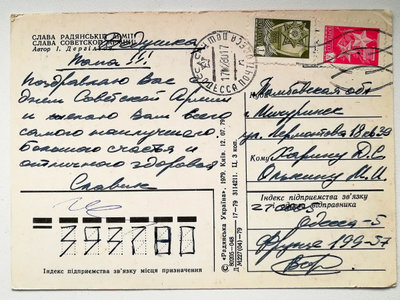 СЛАВА РАДЯНСЬКІЙ АРМІЇ!
СЛАВА СОВЕТСКОЙ АРМИИ!
Автор І. Дергільов
Дедушка
Папа!!!
Поздравляю Вас с
днём Советской Армии
и желаю Вам всего
самого наилучшего,
большого счастья и
отличного здоровья
Славик
393740
Індекс підприємства зв'язку місця призначення
«Радянська Україна», 1979, Київ. 12. 07. 79
17—79 3114211. Ц. 3 коп.
ОДЕССА ПОЧТАМТ
Тамбовская обл
г. Мичуринск
ул. Лермонтова 18 кв 30
Кому Харину Д.С
Олькину М.И
Індекс підприємства зв'язку
відправника
Одесса-5
Фрунзе 199-57